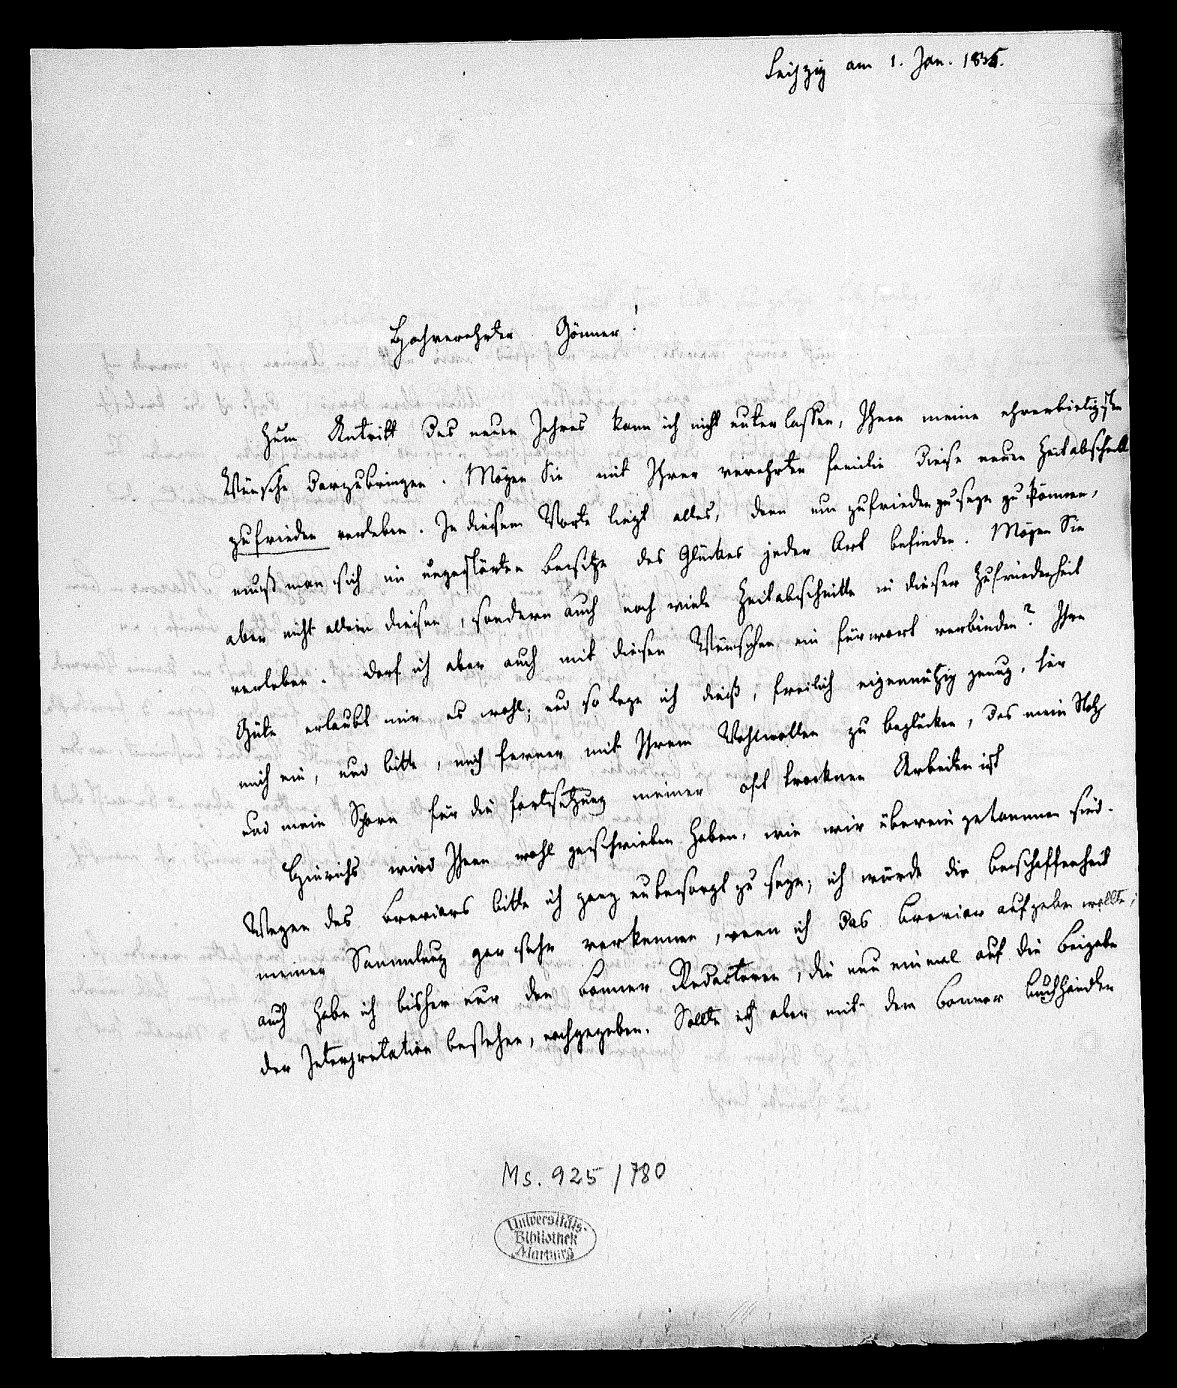 Leipzig am 1. Jan. 1835.
Hochverehrter Gönner!
Zum Antritt des neuen Jahres kann ich nicht unterlassen, Ihnen meine ehrerbietigsten
Wünsche darzubringen. Mögen Sie mit Ihrer verehrten Familie diese neuen Zeitabschnitt
zufrieden verleben. In diesem Worte liegt alles, denn um zufrieden zu seyn zu können,
muß man sich im ungestörten Besitze des Glückes jeder Art befinden. Mögen Sie
aber nicht allein diesen, sondern auch noch viele Zeitabschnitte in dieser Zufriedenheit
verleben. Darf ich aber auch mit diesen Wünschen ein Fürwort verbinden? Ihre
Güte erlaubt mir es wohl; und so lege ich dieß, freilich eigennützig genug, für
mich ein, und bitte, mich ferner mit Ihrem Wohlwollen zu beglücken, das mein Stolz
und mein Sporn für die Fortsetzung meiner oft trocknen Arbeiten ist
Hinrichs wird Ihnen wohl geschrieben haben, wie wir übereingekommen sind.
Wegen des Breviars bitte ich ganz unbesorgt zu seyn; ich würde die Beschaffenheit
meiner Sammlung gar sehr verkennen, wenn ich das Breviar aufgeben wollte;
auch habe ich bisher nur den Bonner Redactoren, die nun einmal auf die Beigabe
der Interpretation bestehen, nachgegeben. Sollte ich aber mit dem Bonner Buchhändler
Ms. 925/780
Universitäts-
Bibliothek
Marburg